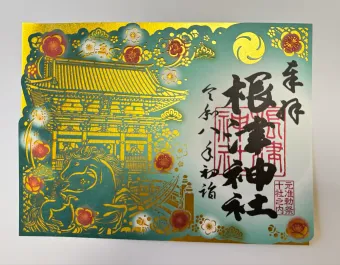 奉拝
根津神社
令和八年初詣
元准勅祭
十社之内